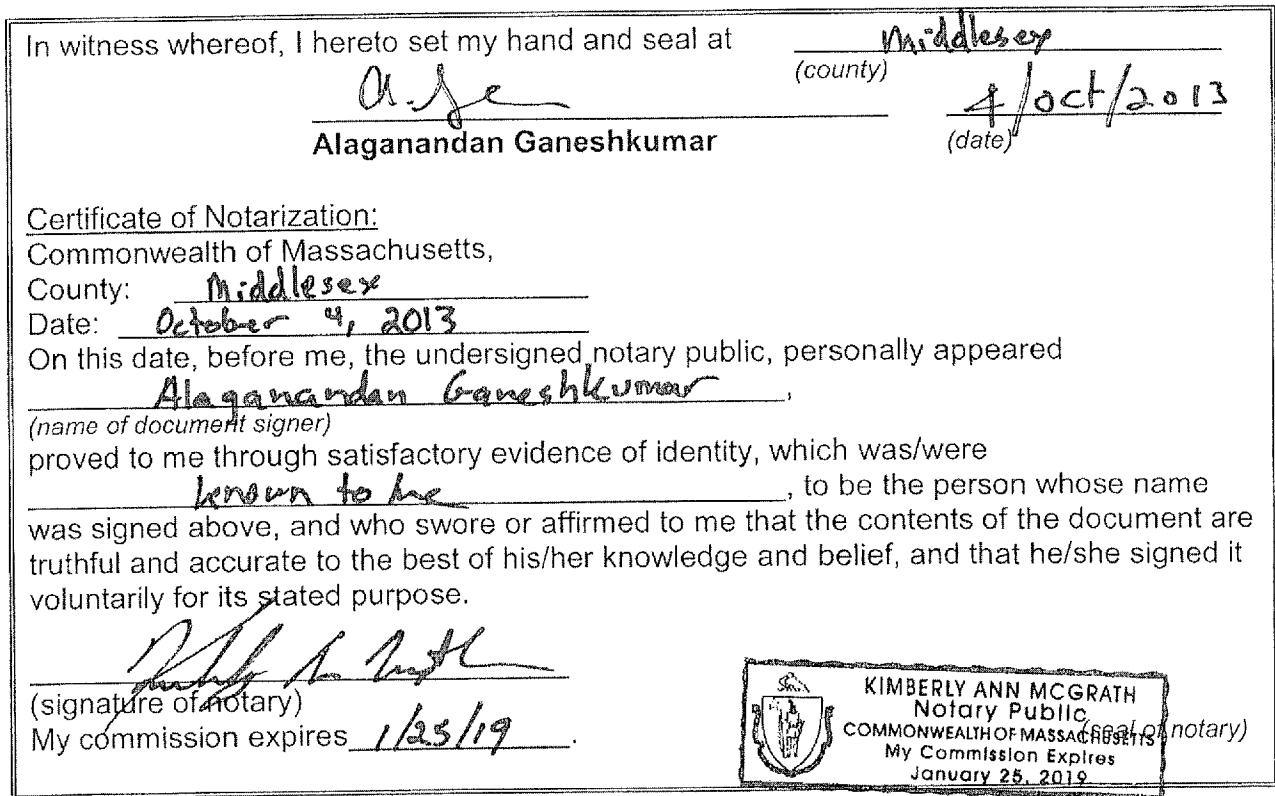 In witness whereof, I hereto set my hand and seal at Middlesex
(county)
4/oct/2013
Alaganandan Ganeshkumar
(date)
Certificate of Notarization:
Commonwealth of Massachusetts,
County: Middlesex
Date: October 4, 2013
On this date, before me, the undersigned notary public, personally appeared
Alaganandan Ganeshkumar,
(name of document signer)
proved to me through satisfactory evidence of identity, which was/were
known to me, to be the person whose name
was signed above, and who swore or affirmed to me that the contents of the document are
truthful and accurate to the best of his/her knowledge and belief, and that he/she signed it
voluntarily for its stated purpose.
(signature of notary)
My commission expires 1/25/19.
KIMBERLY ANN MCGRATH
Notary Public
COMMONWEALTH OF MASSACHUSETTS
(seal of notary)
My Commission Expires
January 25, 2019